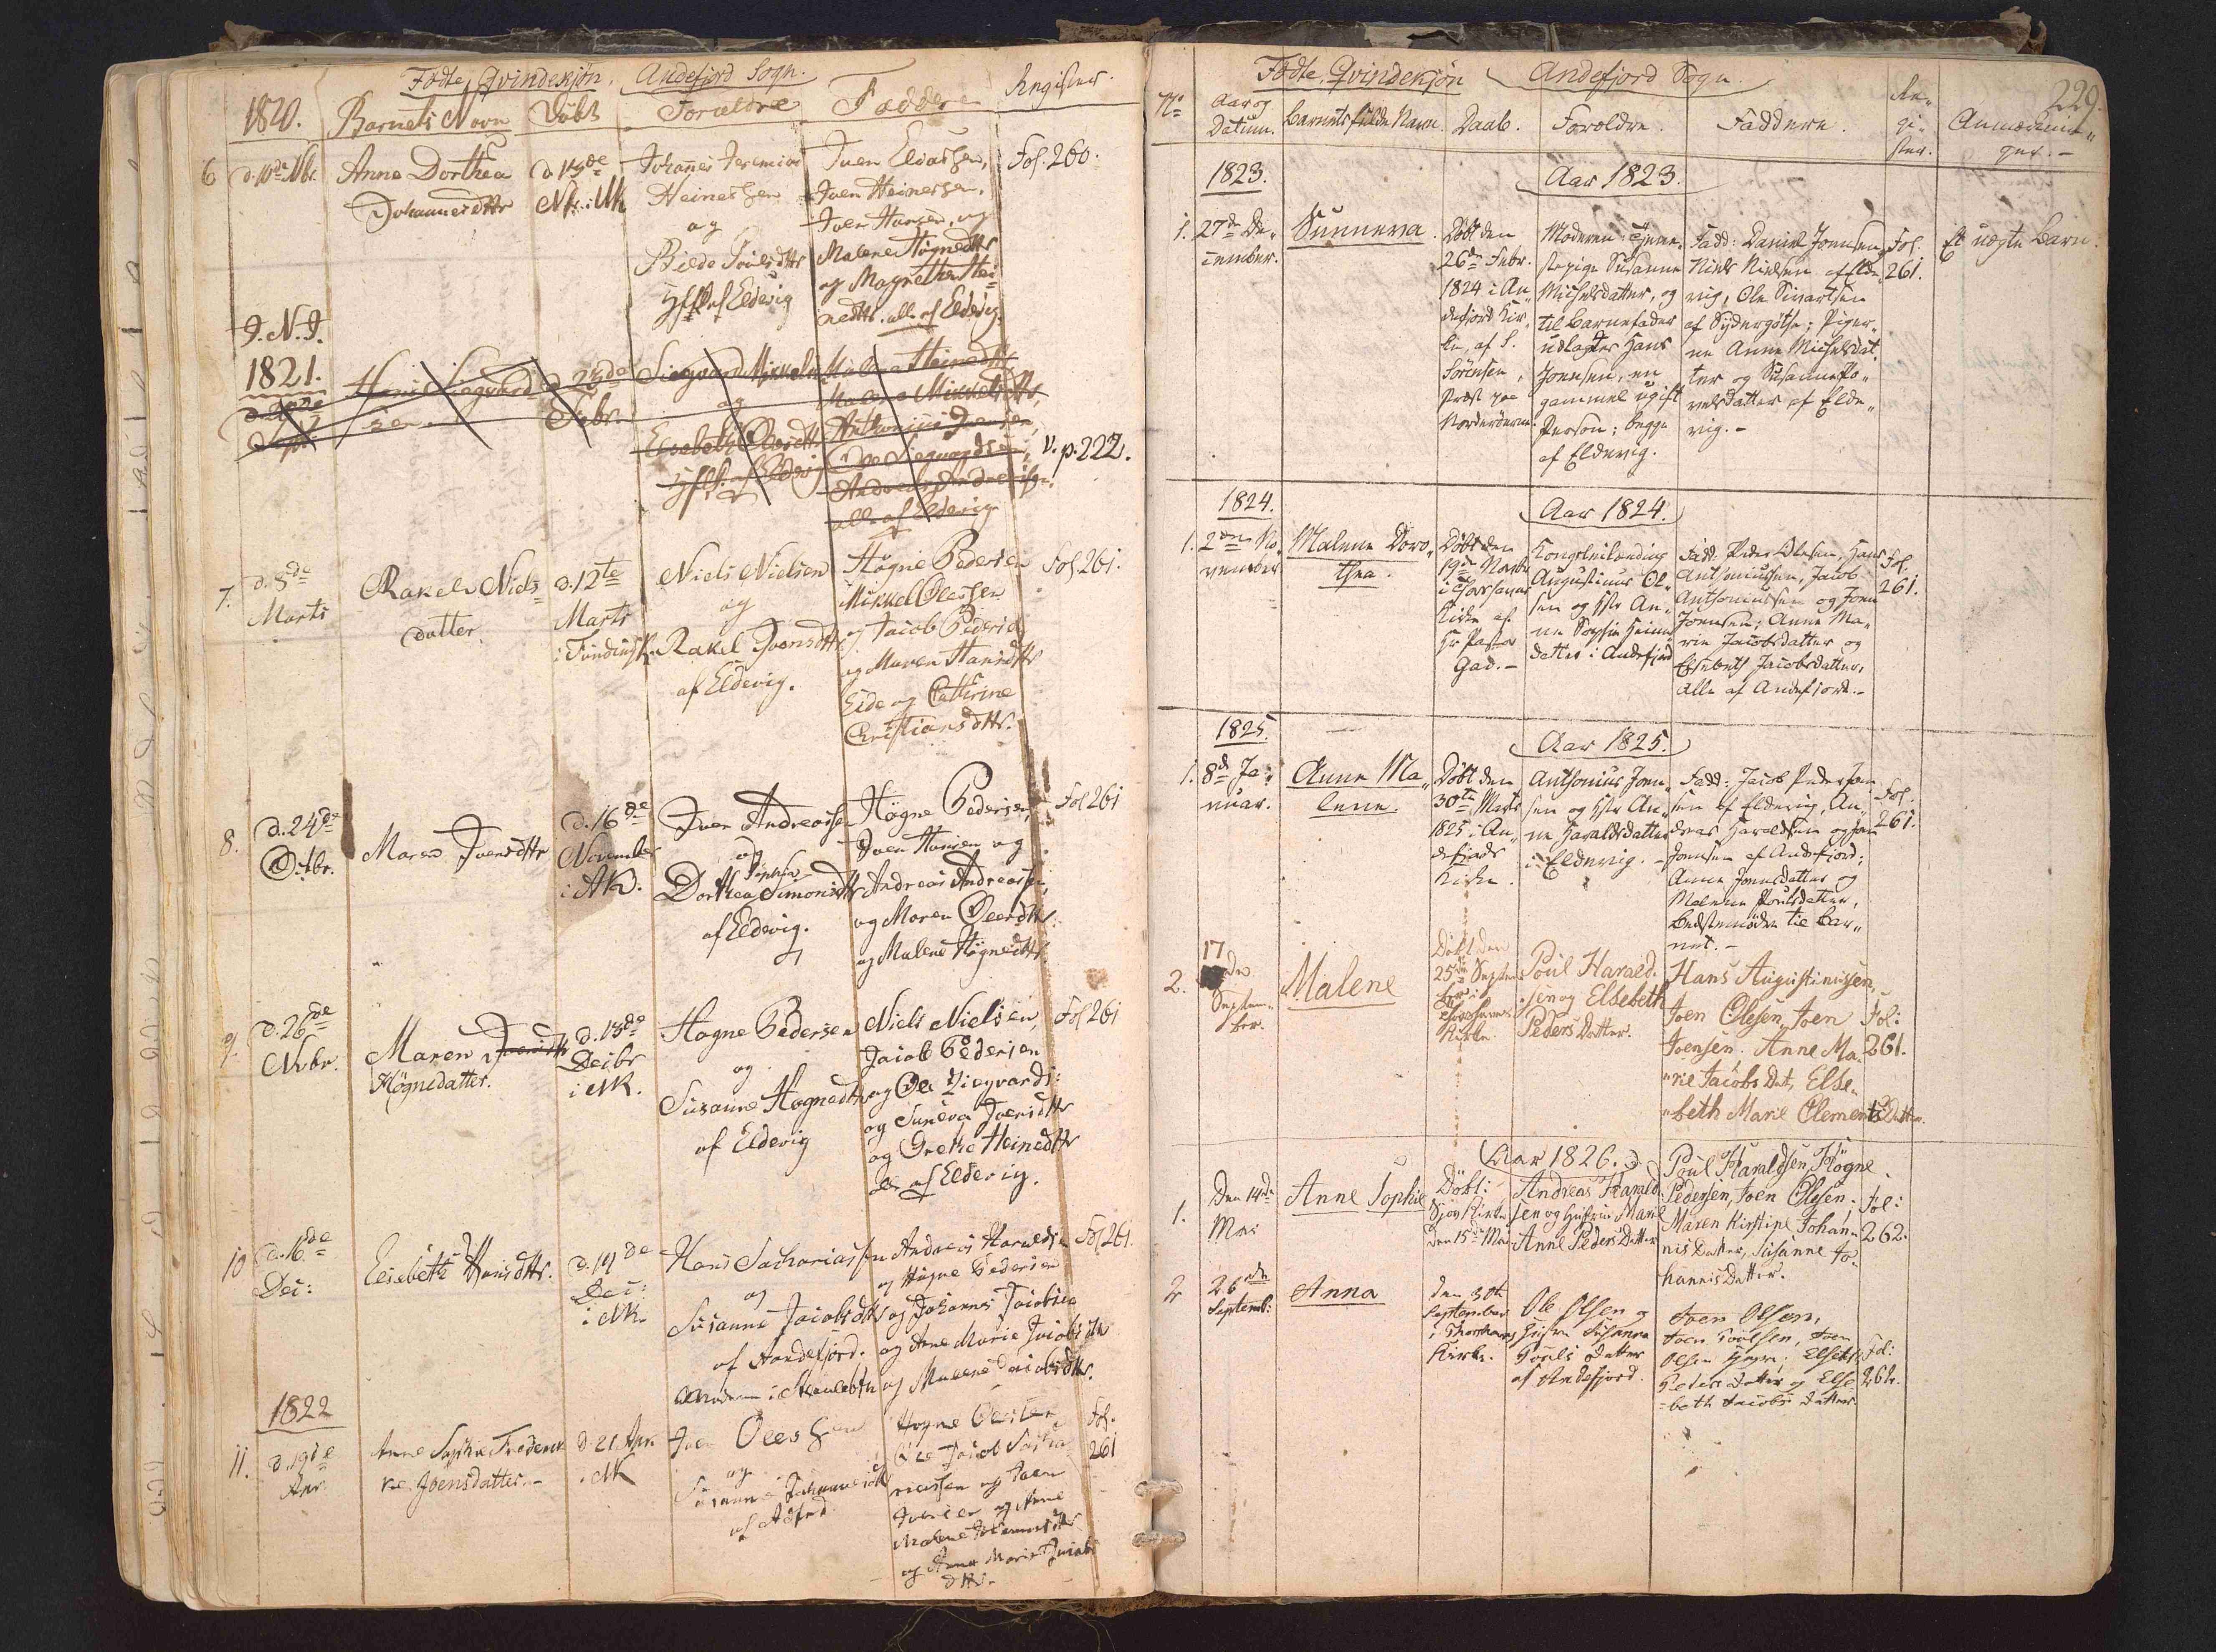 Fødte Qvindekjön. Andefjord Sogn.
1820. Barnets Navn Döbt Forældre Faddere Register
6 d. 10de Nbr. Anne Dorthea Johannesdttr
d. 13de Nbr. i
Johannes Jeremias
Heinessen
og
Joulsdttr
af Eldevig
Joen Eliassen,
Joen Heinesen,
Joen Hansen, og
Malene Högnedttr
og Magrethe Hei
nedttr. alle af Eldevig.
Fol. 260.
I. N. I.
1821.
Hans Siegvard
sen.
d. 25de
Febr.
Siegvard Mikkelsen
og
Elsebeth Olesdttr
af Eldevig
Malene Heinedttr
Malene Mikkelsdttr
Anthonius Joensen,
Ole Siegvardsen,
Andreas Andreassen
alle af Eldevig
V. p. 222.
7. d. 8de
Marts
Rakel Niels
datter.
d. 12te
Marts
Niels Nielsen
og
Rakel Joensdttr
af Eldevig.
Högne Pedersen
Mikkel Olessen
og Jacob Peders
og Maren Hansdttr
Eide og Cathrine
Christiansdttr.
Fol 261.
8. d. 24de
Octbr.
Maren Joensdttr
d. 16de
November
i AK.
Joen Andreassen
og
Sophie
Dorthea Simonsdttr
af Eldevig.
Högne Pedersen,
Joen Hansen og
Andreas Andreassen,
og Maren Olesdttr
og Malene Högnedttr.
Fol 261
9. d. 26de
Nvbr.
Maren Joensdttr
Högnedatter.
d. 13de
Decbr
i AK.
Hogne Pedersen
og
Susanne Hognedttr
af Eldevig
Niels Nielsen,
Jacob Pedersen
og Ole Siegvards:
og Suneva Joensdttr
og Grethe Heinedttr
alle af Eldevig.
Fol 261
10 d. 16de
Dec:
Elsebeth Hansdttr.
d. 19de
Dec:
i AK.
Hans Sachariassen
og
Susanne Jacobsdttr
af Andefjord.
Andreas Haraldsen
og Högne Pedersen
og Johannes Jacobsen
og Anne Marie Jacobsdttr
og Malene Jacobsdttr.
Fol 261.
1822
11. d. 19de
Apr.
Anne Sophie Frederik
ke Joensdatter.
d 21 Apr.
i AK
Joen Olessen
og
Susanne Johannesdttr
Hogne Olessen
Ole Jacob Sacha
riassen og Joen
Joensen og Anne
Malene Johannesdttr
og Anne Marie Jacobs
dttr.
Fol.
261
Fødte Qvindekjön Andefjord Sogn.
229.
No Aar og
Datum.
Barnets fulde Navn.
Daab.
Forældre.
Faddere.
Re-
gi-
ster.
Anmærknin-
ger.
1823.
Aar 1823.
1. 27de De-
cember.
Sunneva.
Döbt den
26de Febr.
1824 i An-
defjord Kir-
ke, af S.
Sörensen,
Præst paa
Norderöerne.
Moderen: Tjene-
stepige Susanne
Michelsdatter, og
til Barnefader
udlagtes Hans
Joensen, en
gammel ugift
Person; begge
af Eldevig.
Fadd: Daniel Joensen,
Niels Nielsen af Elde-
vig, Ole Sivartsen
af Sydergöthe; Piger-
ne Anne Michelsdat-
ter og Susanne Po-
velsdatter af Elde-
vig.
Fol.
261.
Et uægte Barn.
1824.
Aar 1824.
1. 2den No-
vember
Malene Doro-
thea.
Döbt den
19de Novbr
i Thorshavns
Kirke af
Hr Pastor
Gad.
Kongsbonde
Augustinus Ol-
sen og Hstr An-
ne Sophie Heine
datter i Andefjord
Fadd: Peder Olesen, Hans
Anthoniussen, Jacob
Anthoniussen og Joen
Joensen; Anne Ma-
rie Jacobsdatter og
Elsebeth Jacobsdatter,
alle af Andefjord.
Fol.
261.
1825.
Aar 1825.
1. 8de Ja-
nuar.
Anne Ma-
lene.
Döbt den
30te Marts
1825 i An-
defjords
Kirke.
Anthonius Joen-
sen og Hstr An-
ne Haraldsdatter
i Eldevig.
Fadd: Jacob Pedersen
af Eldevig, An-
dreas Haraldsen og Joen
Joensen af Andefjord;
Anne Joensdatter og
Malene Poulsdatter,
Bedstemöder til Bar-
net.
Fol.
261.
2. 17
de
Septem-
ber.
Malene
Döbt den
25de Septem
ber i
Thorshavns
Kirke.
Poul Harald-
sen og Elsebeth
Peders Datter.
Hans Augustinussen,
Joen Olesen, Joen
Joensen. Anne Ma-
rie Jacobs Dat, Else-
beth Marie Clements Datter.
Fol:
261.
Aar 1826.
1. Den 14de
Mai
Anne Sophie
Döbt:
Siøv Kirke
den 15de Mai
Andreas Harald-
sen og Hustrue Marie
Anne Peders Datter
Poul Haraldsen, Högne
Pedersen, Joen Olesen.
Maren Kirstine Johan-
nis Datter, Susanne Jo-
hannis Datter.
Fol:
262.
2 26de
Septemb:
Anna
den 30te
September
i Thorshavns
Kirke.
Ole Olsen og
Hustru Susanna
Pouls datter
af Andefjord.
Joen Olsen,
Joen Poulsen, Joen
Olsen; Elsebeth
Peters datter og Else-
beth Jacobs datter
Fol:
262.